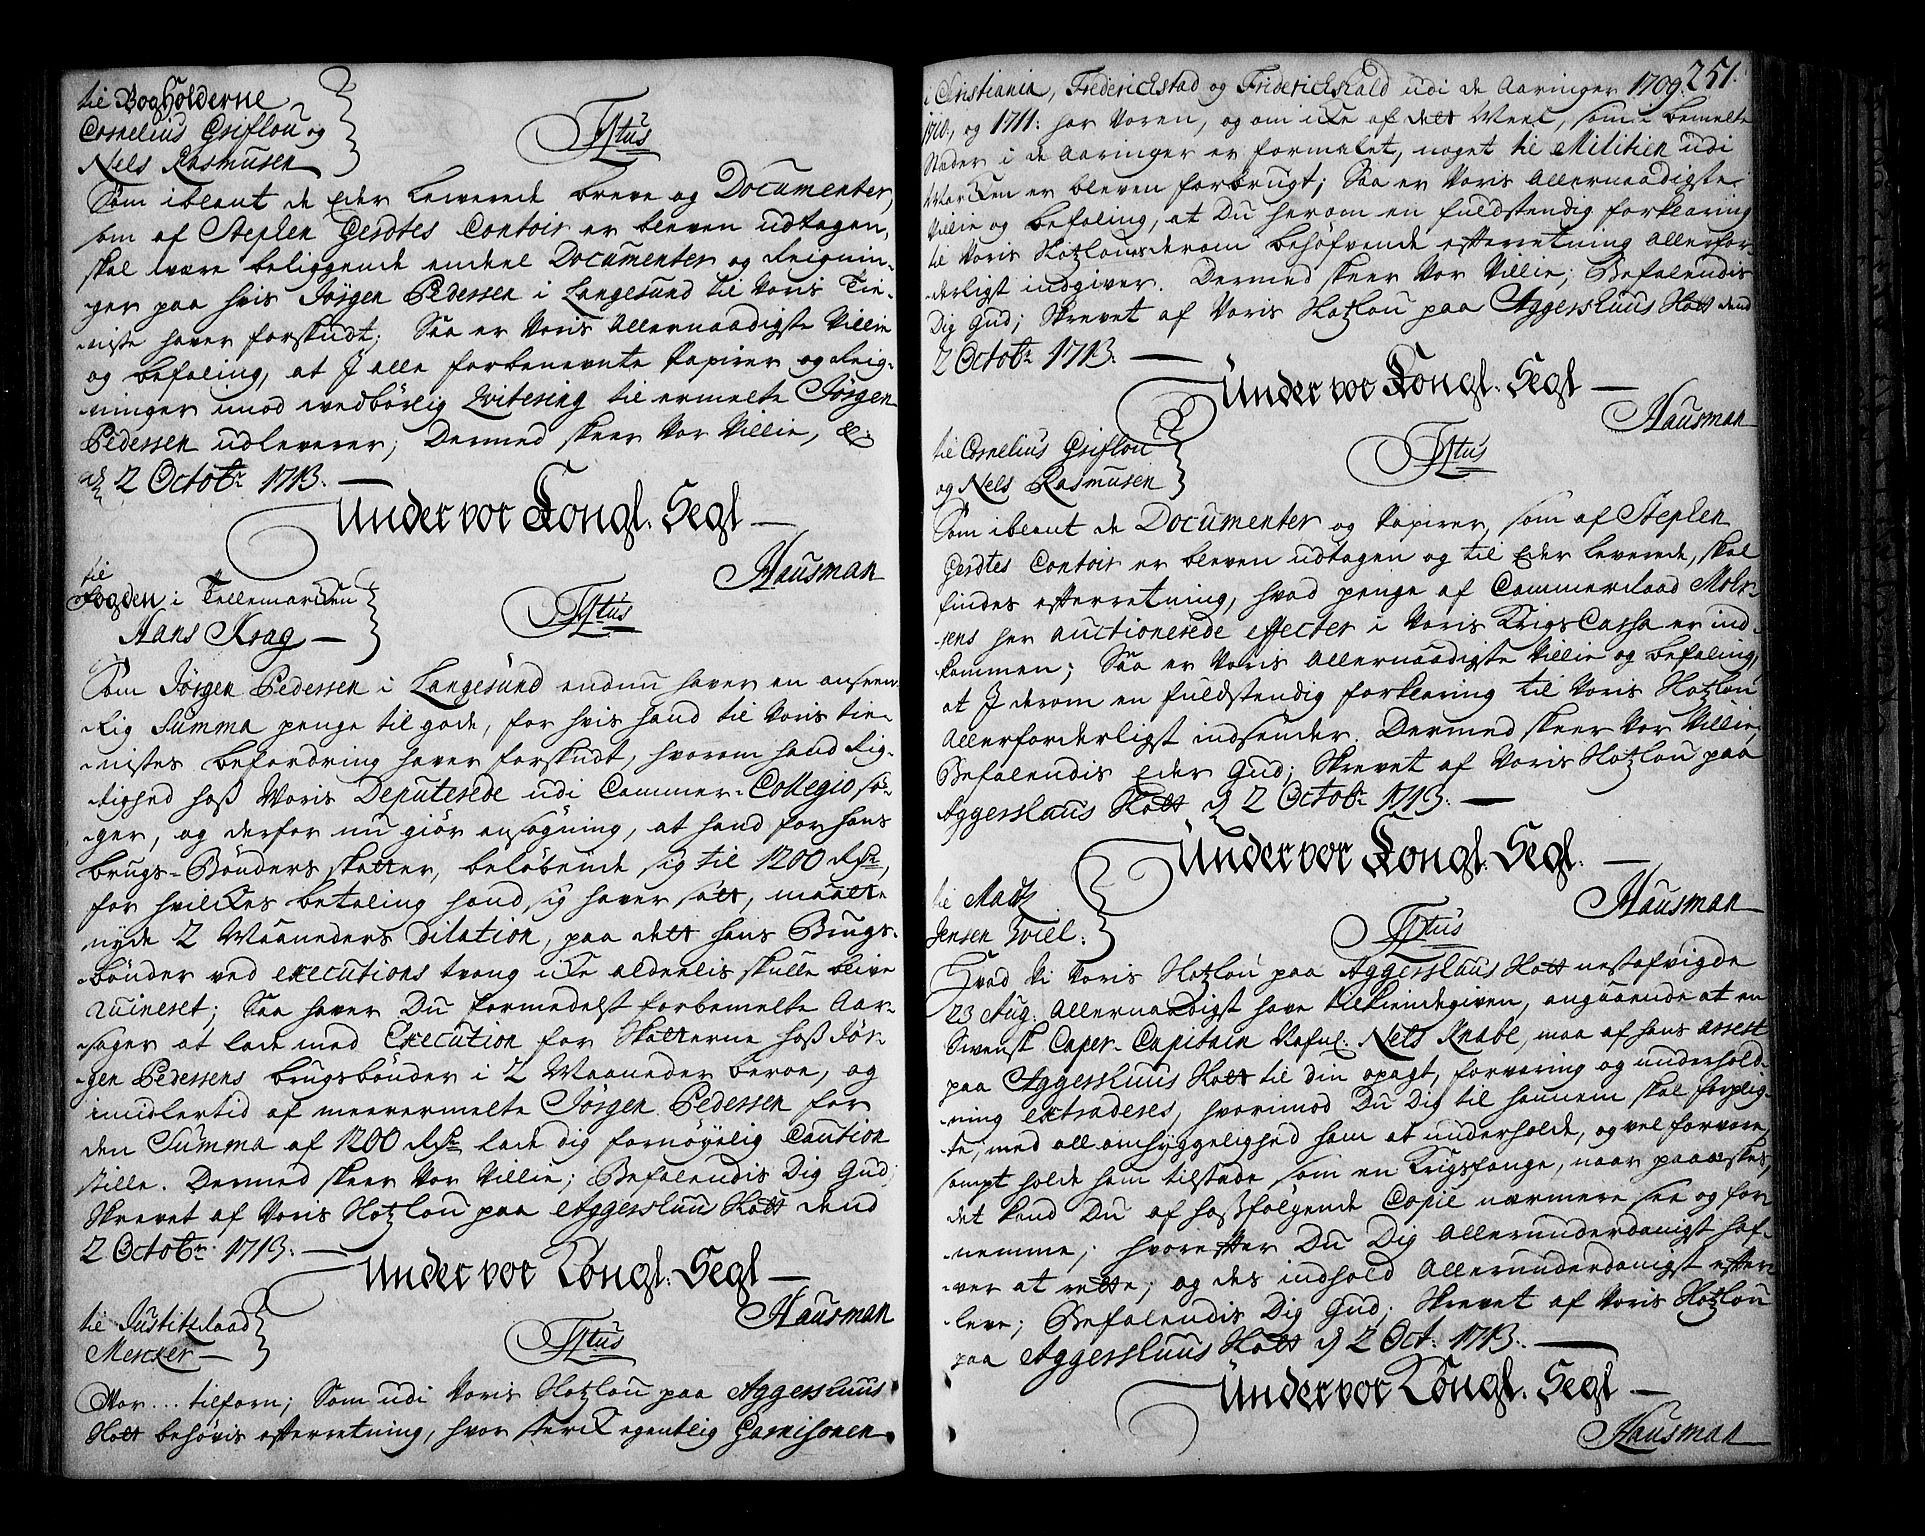 til Bogholderne
Cornelius Griflou og
Nels Rasmusen
Titus
Som iblant de Eder leverede breve og Documenter,
som af Stephen Gerdtes Contoir er bleven udtagen,
skal være beliggende endeel Documenter og Reignin-
ger paa hvis Jörgen Pedersen i Langesund til Voris Tie-
niste haver forskudt; Saa er Voris Allernaadigste Villie
og befaling, at J alle forbenevnte Papirer og Reig-
ninger imod vedbörlig Qvitering til ermelte Jörgen
Pedersen udleverer; Dermed skeer Vor Villie, &c.
d. 2 Octobr. 1713.
Under vor Kongl. Segl
Hausman
til
Fogden i Tellemarcken
Hans Krag
Titus
Som Jörgen Pedersen i Langesund endnu haver en anseen-
lig Summa penge til gode, for hvis hand til Voris tie-
nistes befordring haver forskudt, hvorom hand Rig-
tighed hoss Voris Deputerede udi Cammer-Collegio sö-
ger, og derfor nu giör ansögning, at hand for hans
brugs-Bönders skatter, belöbende sig til 1200 Rdr.,
for hvilckes betaling hand sig haver satt, maatte
nyde 2 Maaneders Dilation, paa dett hans Brugs-
bönder ved executions tvang icke alderlis skulle blive
ruineret; Saa haver Du formedelst forbemelte Aar-
sager at lade med Execution for Skatterne hoss Jör-
gen Pedersens brugsbönder i 2 Maaneder beroe, og
imidlertid af meerermelte Jörgen Pedersen for
den Summa af 1200 Rdr. lade dig fornöyelig Caution
stille. Dermed skeer Vor Villie; Befalendis Dig Gud;
Skrevet af Voris Slotzlou paa Aggershuus Slott dend
2 Octobr. 1713.
Under vor Kongl. Segl
Hausman
til Justitzraad
Mercker
Titus
Vor ... tilforn; Som udi Voris Slotzlou paa Aggershuus
Slott behövis efterretning, hvor sterck egentlig Garnisonen
251.
i Cristiania, Frederichstad og Friderichshald udi de Aaringer 1709.
1710, og 1711: har Voren, og om icke af dett Meel, som i bemelte
Steder i de Aaringer er formalet, noget til Militien udi
Marcken er bleven forbrugt; Saa er Voris Allernaadigste
Villie og befaling, at Du herom en fuldstendig forklaring
til Voris Slotzlous derom behöfvende efterretning Allerfor-
derligt indgiver. Dermed skeer Vor Villie; Befalendis
Dig Gud; Skrevet af Voris Slotzlou paa Aggershuus Slott dend
2 Octobr. 1713.
Under vor Kongl. Segl
Hausman
til Cornelius Griflou
og Nels Rasmusen
Titus
Som iblant de Documenter og Papirer, som af Stephen
Gerdtes Contoir er bleven udtagen og til Eder leverede, skal
findes efterretning, hvad penge af Cammerraad Mohr-
sens her auctionerede effecter i Voris KrigsCassa er ind-
kommen; Saa er Voris Allernaadigste Villie og befaling,
at J derom en fuldstendig forklaring til Voris Slotzlou
Allerforderligst indsender. Dermed skeer Vor Villie
Befalendis Eder Gud; Skrevet af Voris Slotzlou paa
Aggershuus Slott d. 2 Octobr. 1713.
Under vor Kongl. Segl.
Hausman
til Madtz
Jensen Tviel.
Titus
Hvad Vi Voris Slotzlou paa Aggershuus Slott nestafvigde
23 Aug. Allernaadigst have tilkiendegiven, angaaende at en
Svensk Caper-Capitain Nafnl. Nels Knabe, maa af hans arrest
paa Aggershuus Slott til din opagt, forvaring og underhold-
ning extraderes, hvorimod Du Dig til hannem skal forplig-
te, med all omhyggelighed ham at underholde, og vel forvare,
sampt holde ham tilstade som en Krigsfange, naar paaæskes,
det kand Du af hossfölgende Copie nærmere see og for-
nemme; hvorefter Du Dig Allerunderdanigst haf-
ver at rette; og des indhold Allerunderdanigst efter-
leve; Befalendis Dig Gud; Skrevet af Voris Slotzlou
paa Aggershuus Slott d. 2 Oct. 1713.
Under vor Kongl. Segl
Hausman